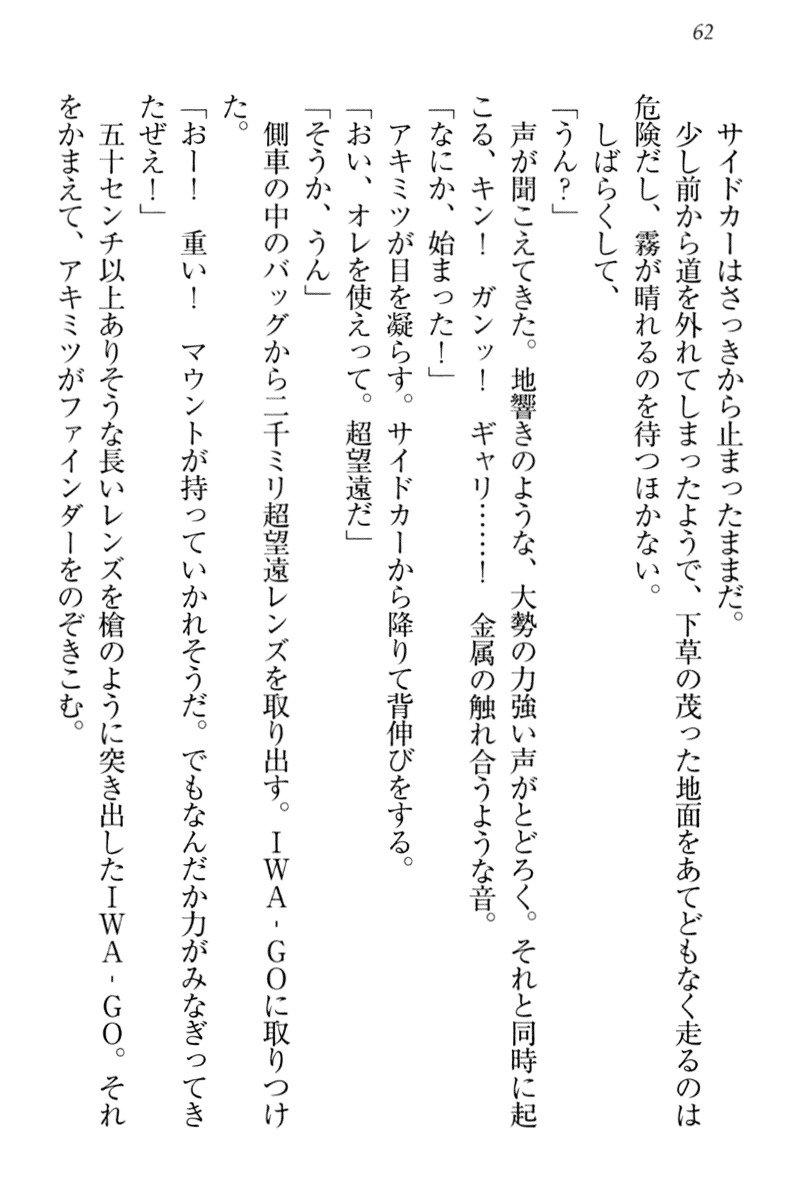 62
サイドカーはさっきから止まったままだ。
少し前から道を外れてしまったようで、下草の茂った地面をあてどもなく走るのは
危険だし、霧が晴れるのを待つほかない。
しばらくして、
「うん？」
声が聞こえてきた。地響きのような、大勢の力強い声がとどろく。それと同時に起
こる、キン！　ガンッ！　ギャリ……！　金属の触れ合うような音。
「なにか、始まった！」
アキミツが目を凝らす。サイドカーから降りて背伸びをする。
「おい、オレを使えって。超望遠だ」
「そうか、うん」
側車の中のバッグから二千ミリ超望遠レンズを取り出す。ＩＷＡ‐ＧＯに取りつけ
た。
「おー！　重い！　マウントが持っていかれそうだ。でもなんだか力がみなぎってき
たぜえ！」
五十センチ以上ありそうな長いレンズを槍のように突き出したＩＷＡ‐ＧＯ。それ
をかまえて、アキミツがファインダーをのぞきこむ。